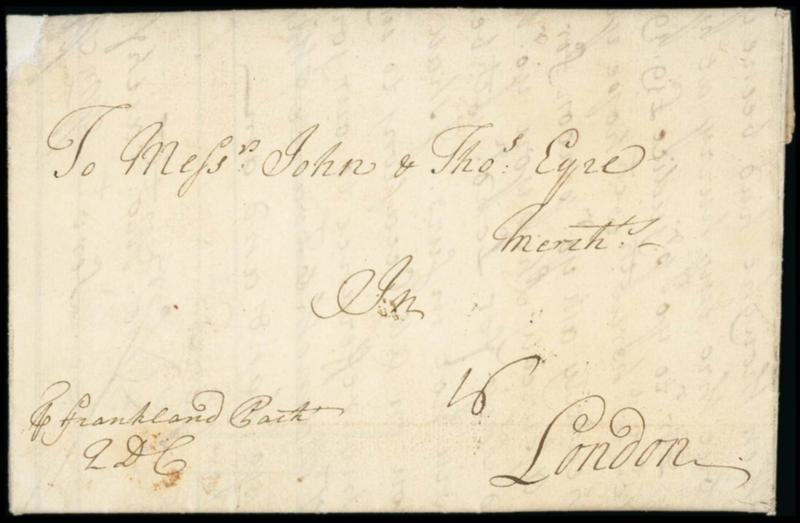 To Messrs. John & Thos. Eyre
Mercht.s
In
16
London
⅌ Frankland Packt
2 D C